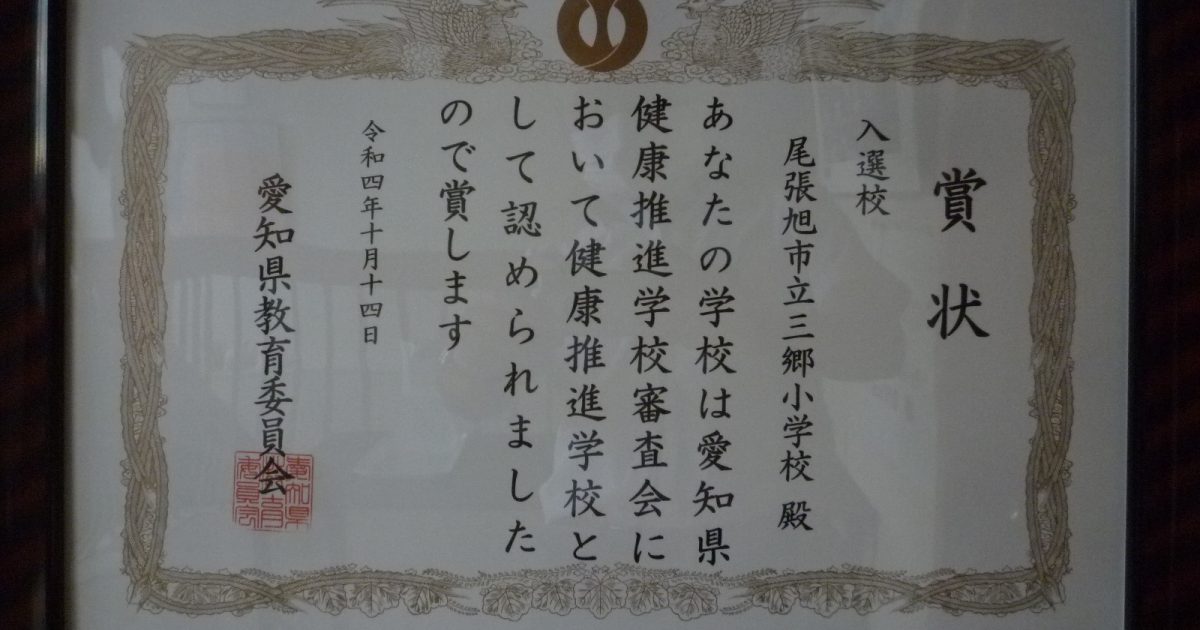 賞状
入選校
尾張旭市立三郷小学校 殿
あなたの学校は愛知県
健康推進学校審査会に
おいて健康推進学校と
して認められました
ので賞します
令和四年十月十四日
愛知県教育委員会